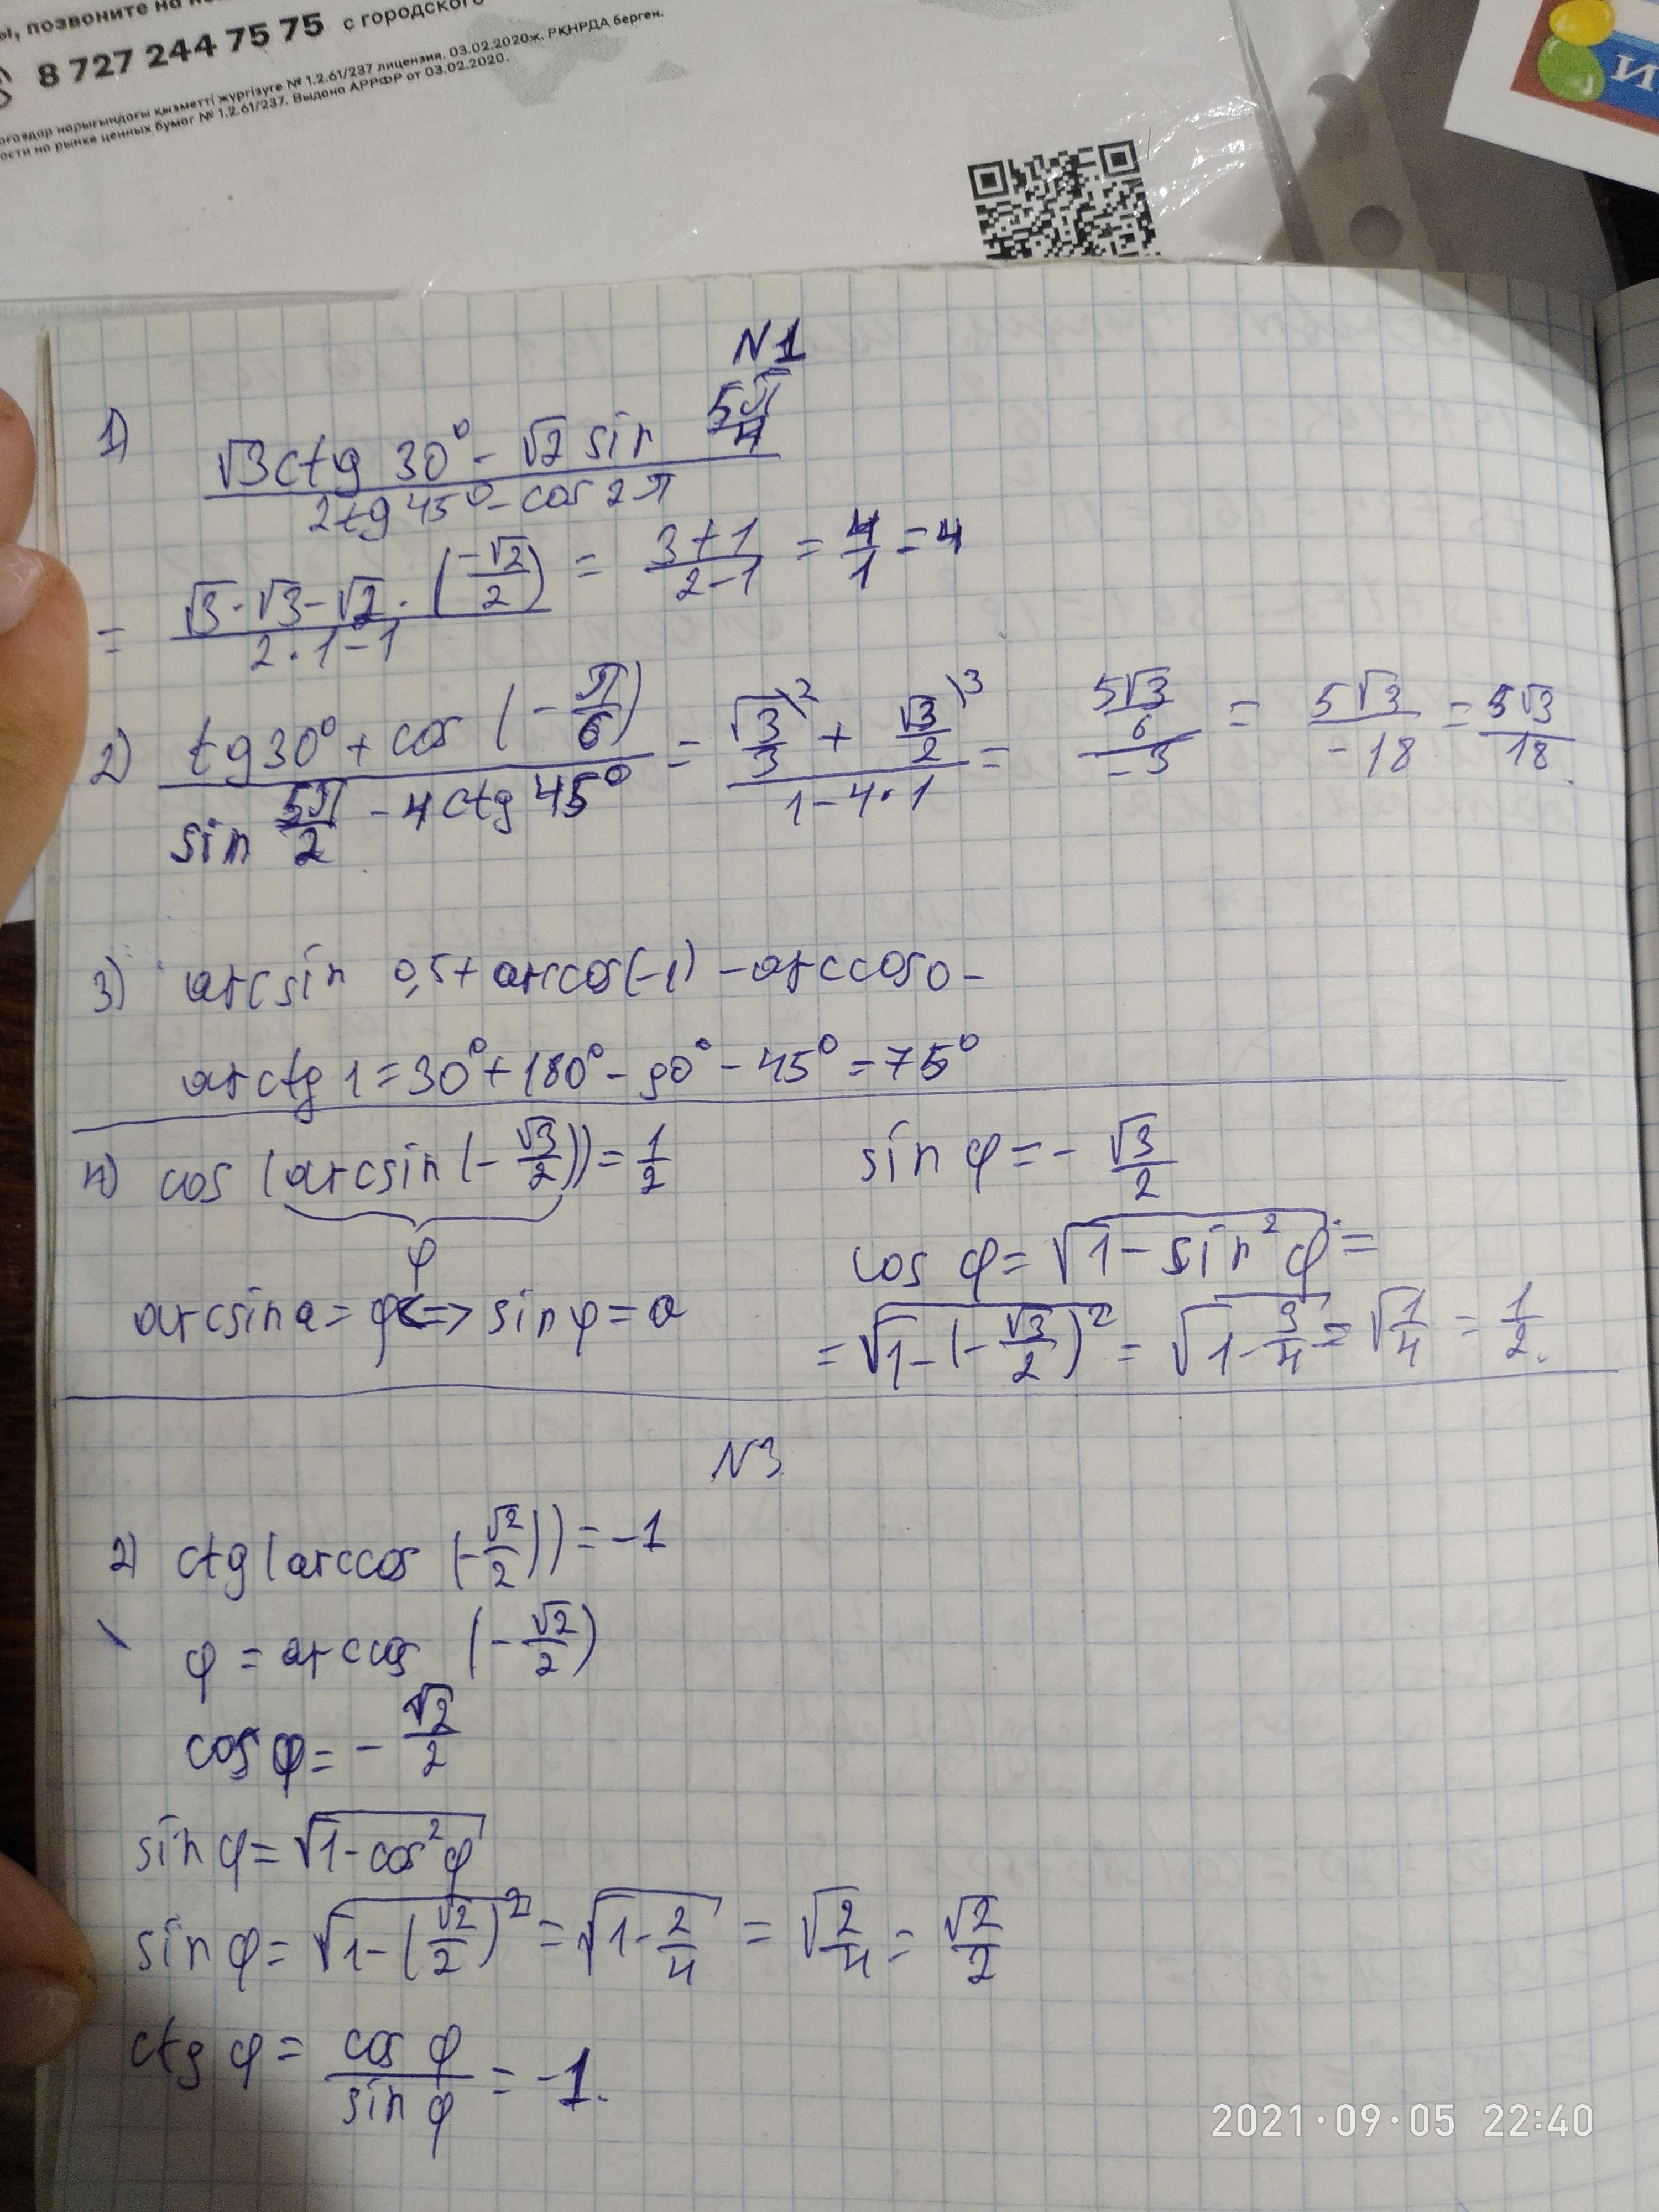 ы, позвоните на
8 727 244 75 75 с городского
қызметті жүргізуге № 1.2.61/237 лицензия. 03.02.2020ж. РҚНРДА берген.
ости на рынке ценных бумаг № 1.2.61/237. Выдана АРРФР от 03.02.2020.
И
N1
1) (√3ctg 30° - √2 sin 5π/4)/(2tg 45° - cos 2π)
= (√3·√3-√2·(-√2/2))/(2·1-1) = (3+1)/(2-1) = 4/1 = 4
2) (tg30° + cos (-π/6))/(sin 5π/2 - 4ctg 45°) = (√3/3^)2 + √3/2^)3)/(1-4·1) = (5√3/6)/(-3) = 5√3/-18 = 5√3/18.
3) arcsin 0,5+arccos(-1) -arccos0 -
arctg 1=30°+180°-90°-45°=75°
4) cos (arcsin(-√3/2))=1/2
φ
arcsina=φ<=>sinφ=a
sin φ=-√3/2
cos φ=√(1-sin²φ)=
=√(1-(-√3/2)²)=√(1-3/4)=√(1/4)=1/2.
N3
2) ctg(arccos(-√2/2))=-1
φ=arccos (-√2/2)
cosφ=-√2/2
sin φ=√(1-cos²φ)
sin φ=√(1-(√2/2)²)=√(1-2/4)=√2/4=√2/2
ctg φ=cos φ/sin φ=-1.
2021·09·05 22:40